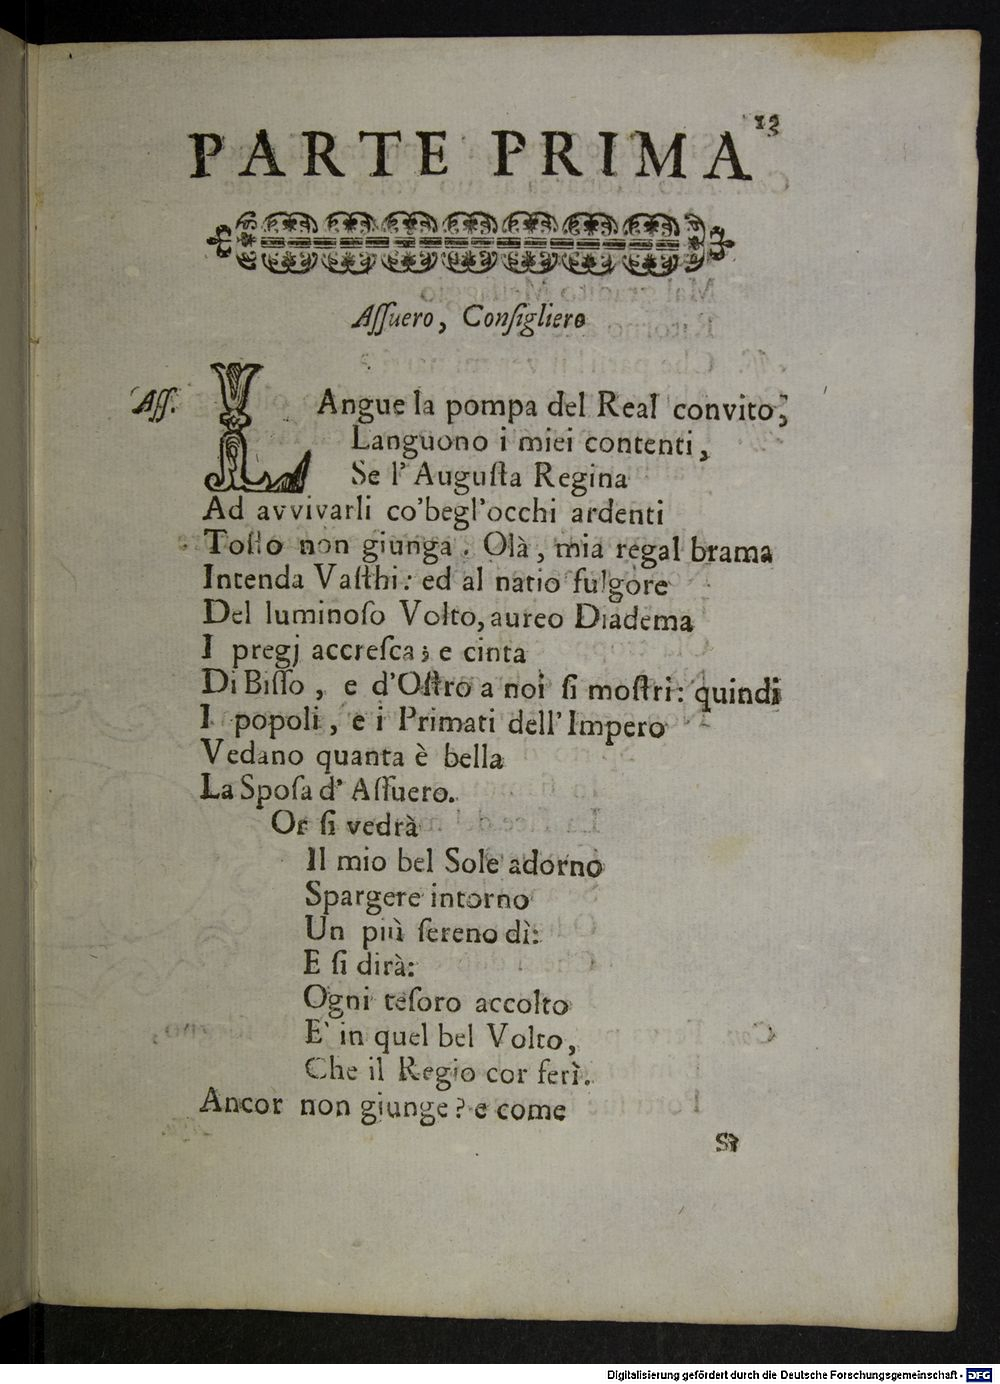 13
PARTE PRIMA
Aſſuero, Conſigliere
Aſſ. LAngue la pompa del Real convito,
Languono i miei contenti,
Se l'Auguſta Regina
Ad avvivarli co'begl'occhi ardenti
Toſto non giunga. Olà, mia regal brama
Intenda Vaſthi: ed al natio fulgore
Del luminoſo Volto, aureo Diadema
I pregj accreſca; e cinta
Di Biſſo, e d'Oſtro a noi ſi moſtri: quindi
I popoli, e i Primati dell'Impero
Vedano quanta è bella
La Spoſa d'Aſſuero.
Or ſi vedrà
Il mio bel Sole adorno
Spargere intorno
Un più ſereno dì:
E ſi dirà:
Ogni teſoro accolto
E' in quel bel Volto,
Che il Regio cor ferì.
Ancor non giunge? e come
Sì
Digitalisierung gefördert durch die Deutsche Forschungsgemeinschaft - DFG